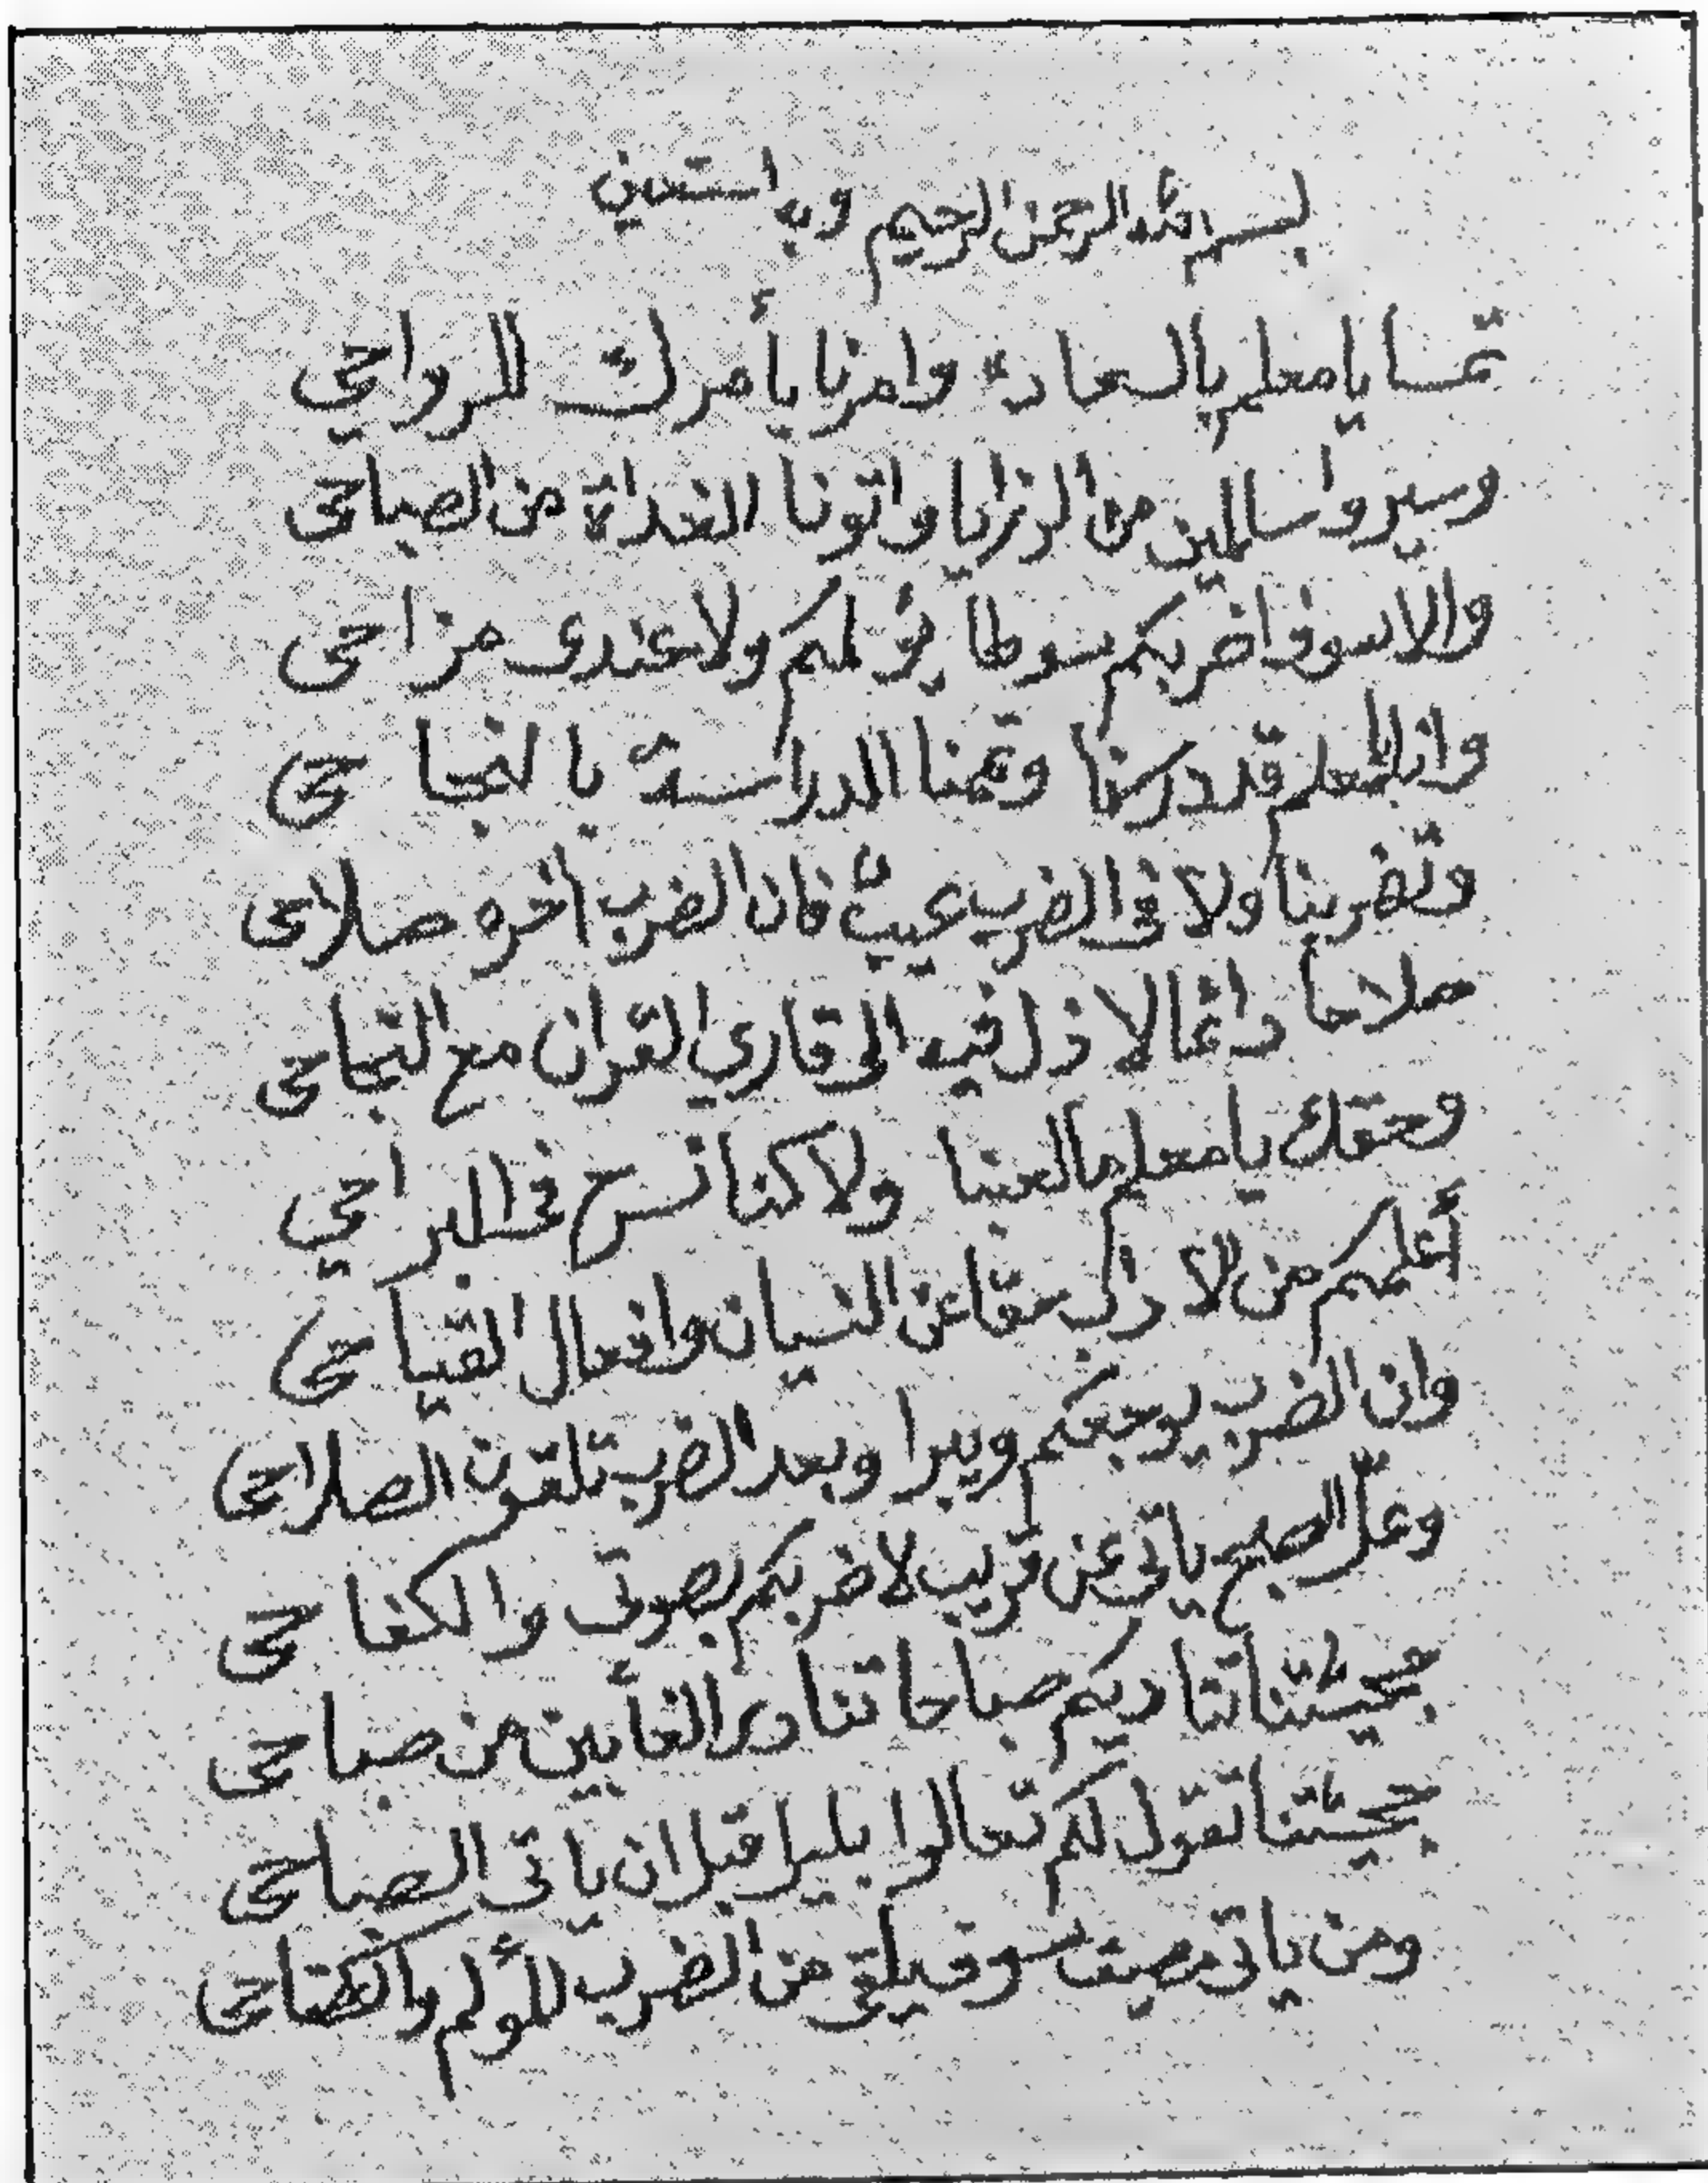 بسم الله الرحمن الرحيم وبه استعين
تمسا يا معلم بالسعادة وامرنا يأمرك للرواحي
وسيروا سالمين من الرزايا واتونا الغداة من الصباحي
والا سوف اضربكم بسوطا يؤلمكم ولا عندي مزاحي
وانا يا معلم قد درسنا وتمنا الدراسة بالنجاحي
وتضربنا ولا في الضرب عيبٌ فان الضرب آخره صلاحي
صلاحا دائما لا ذل فيه الى قاري القران مع النجاحي
وحقك يا معلم ما لعبنا ولا كنا نسرح في البراحي
أعلمكم من الاداب حقا عن النسيان وافعال القباحي
وان الضرب يوجعكم ويبرا وبعد الضرب تلقون الصلاحي
وعلّ الصبح ياتي عن قريب لاضربكم بصوتي والكفاحي
بجيئتنا تناديكم صباحا تنادي الغأيبين من صباحي
بجيئتنا تقول لكم تعالوا بليرا قبل ان ياتي الصباحي
ومن ياتي سوف يلقى من الضرب المؤلم